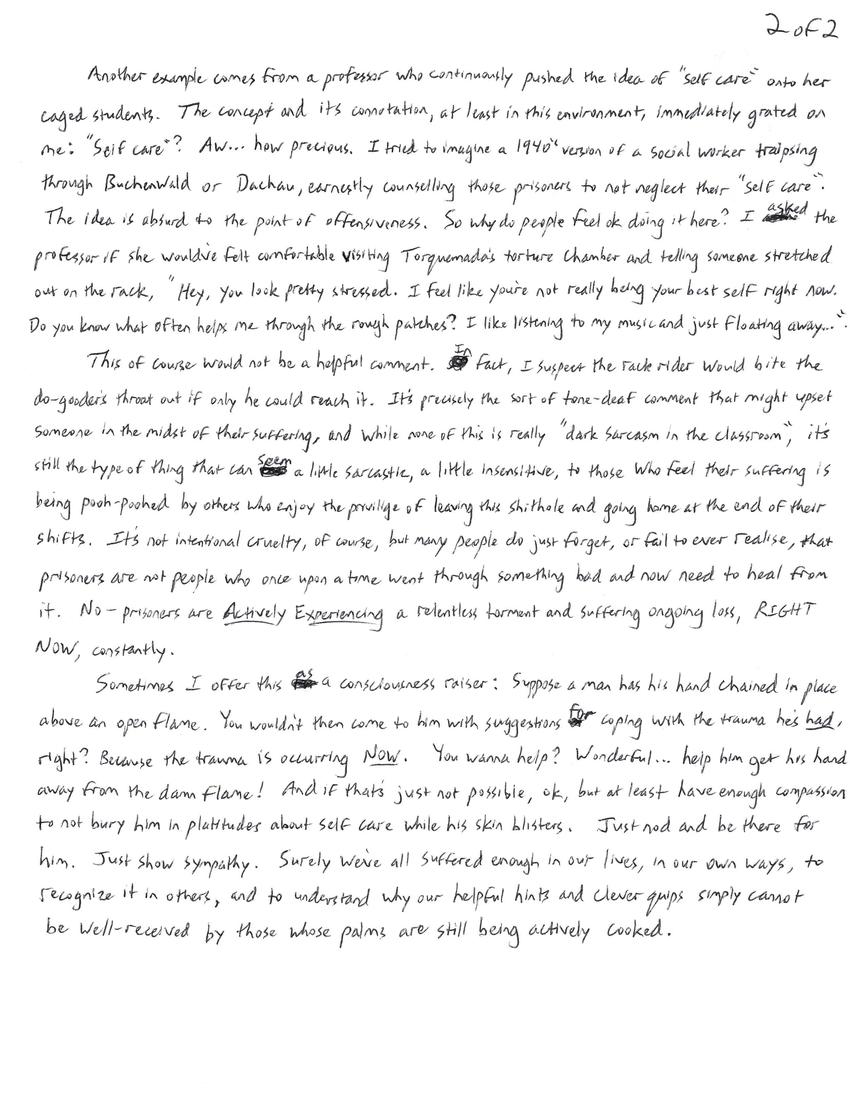 2 of 2
Another example comes from a professor who continuously pushed the idea of "self care" onto her
caged students. The concept and its connotation, at least in this environment, immediately grated on
me: "Self care"? Aw... how precious. I tried to imagine a 1940's version of a social worker traipsing
through Buchenwald or Dachau, earnestly counselling those prisoners to not neglect their "self care".
The idea is absurd to the point of offensiveness. So why do people feel ok doing it here? I asked the
professor if she would've felt comfortable visiting Torquemada's torture chamber and telling someone stretched
out on the rack, "Hey, you look pretty stressed. I feel like you're not really being your best self right now.
Do you know what often helps me through the rough patches? I like listening to my music and just floating away...".
This of course would not be a helpful comment. In fact, I suspect the rack rider would bite the
do-gooder's throat out if only he could reach it. It's precisely the sort of tone-deaf comment that might upset
someone in the midst of their suffering, and while none of this is really "dark sarcasm in the classroom", it's
still the type of thing that can seem a little sarcastic, a little insensitive, to those who feel their suffering is
being pooh-poohed by others who enjoy the privilige of leaving this shithole and going home at the end of their
shifts. It's not intentional cruelty, of course, but many people do just forget, or fail to ever realise, that
prisoners are not people who once upon a time went through something bad and now need to heal from
it. No - prisoners are Actively Experiencing a relentless torment and suffering ongoing loss, RIGHT
NOW, constantly.
Sometimes I offer this as a consciousness raiser: Suppose a man has his hand chained in place
above an open flame. You wouldn't then come to him with suggestions for coping with the trauma he's had,
right? Because the trauma is occurring NOW. You wanna help? Wonderful... help him get his hand
away from the damn flame! And if that's just not possible, ok, but at least have enough compassion
to not bury him in platitudes about self care while his skin blisters. Just nod and be there for
him. Just show sympathy. Surely we've all suffered enough in our lives, in our own ways, to
recognize it in others, and to understand why our helpful hints and clever quips simply cannot
be well-received by those whose palms are still being actively cooked.